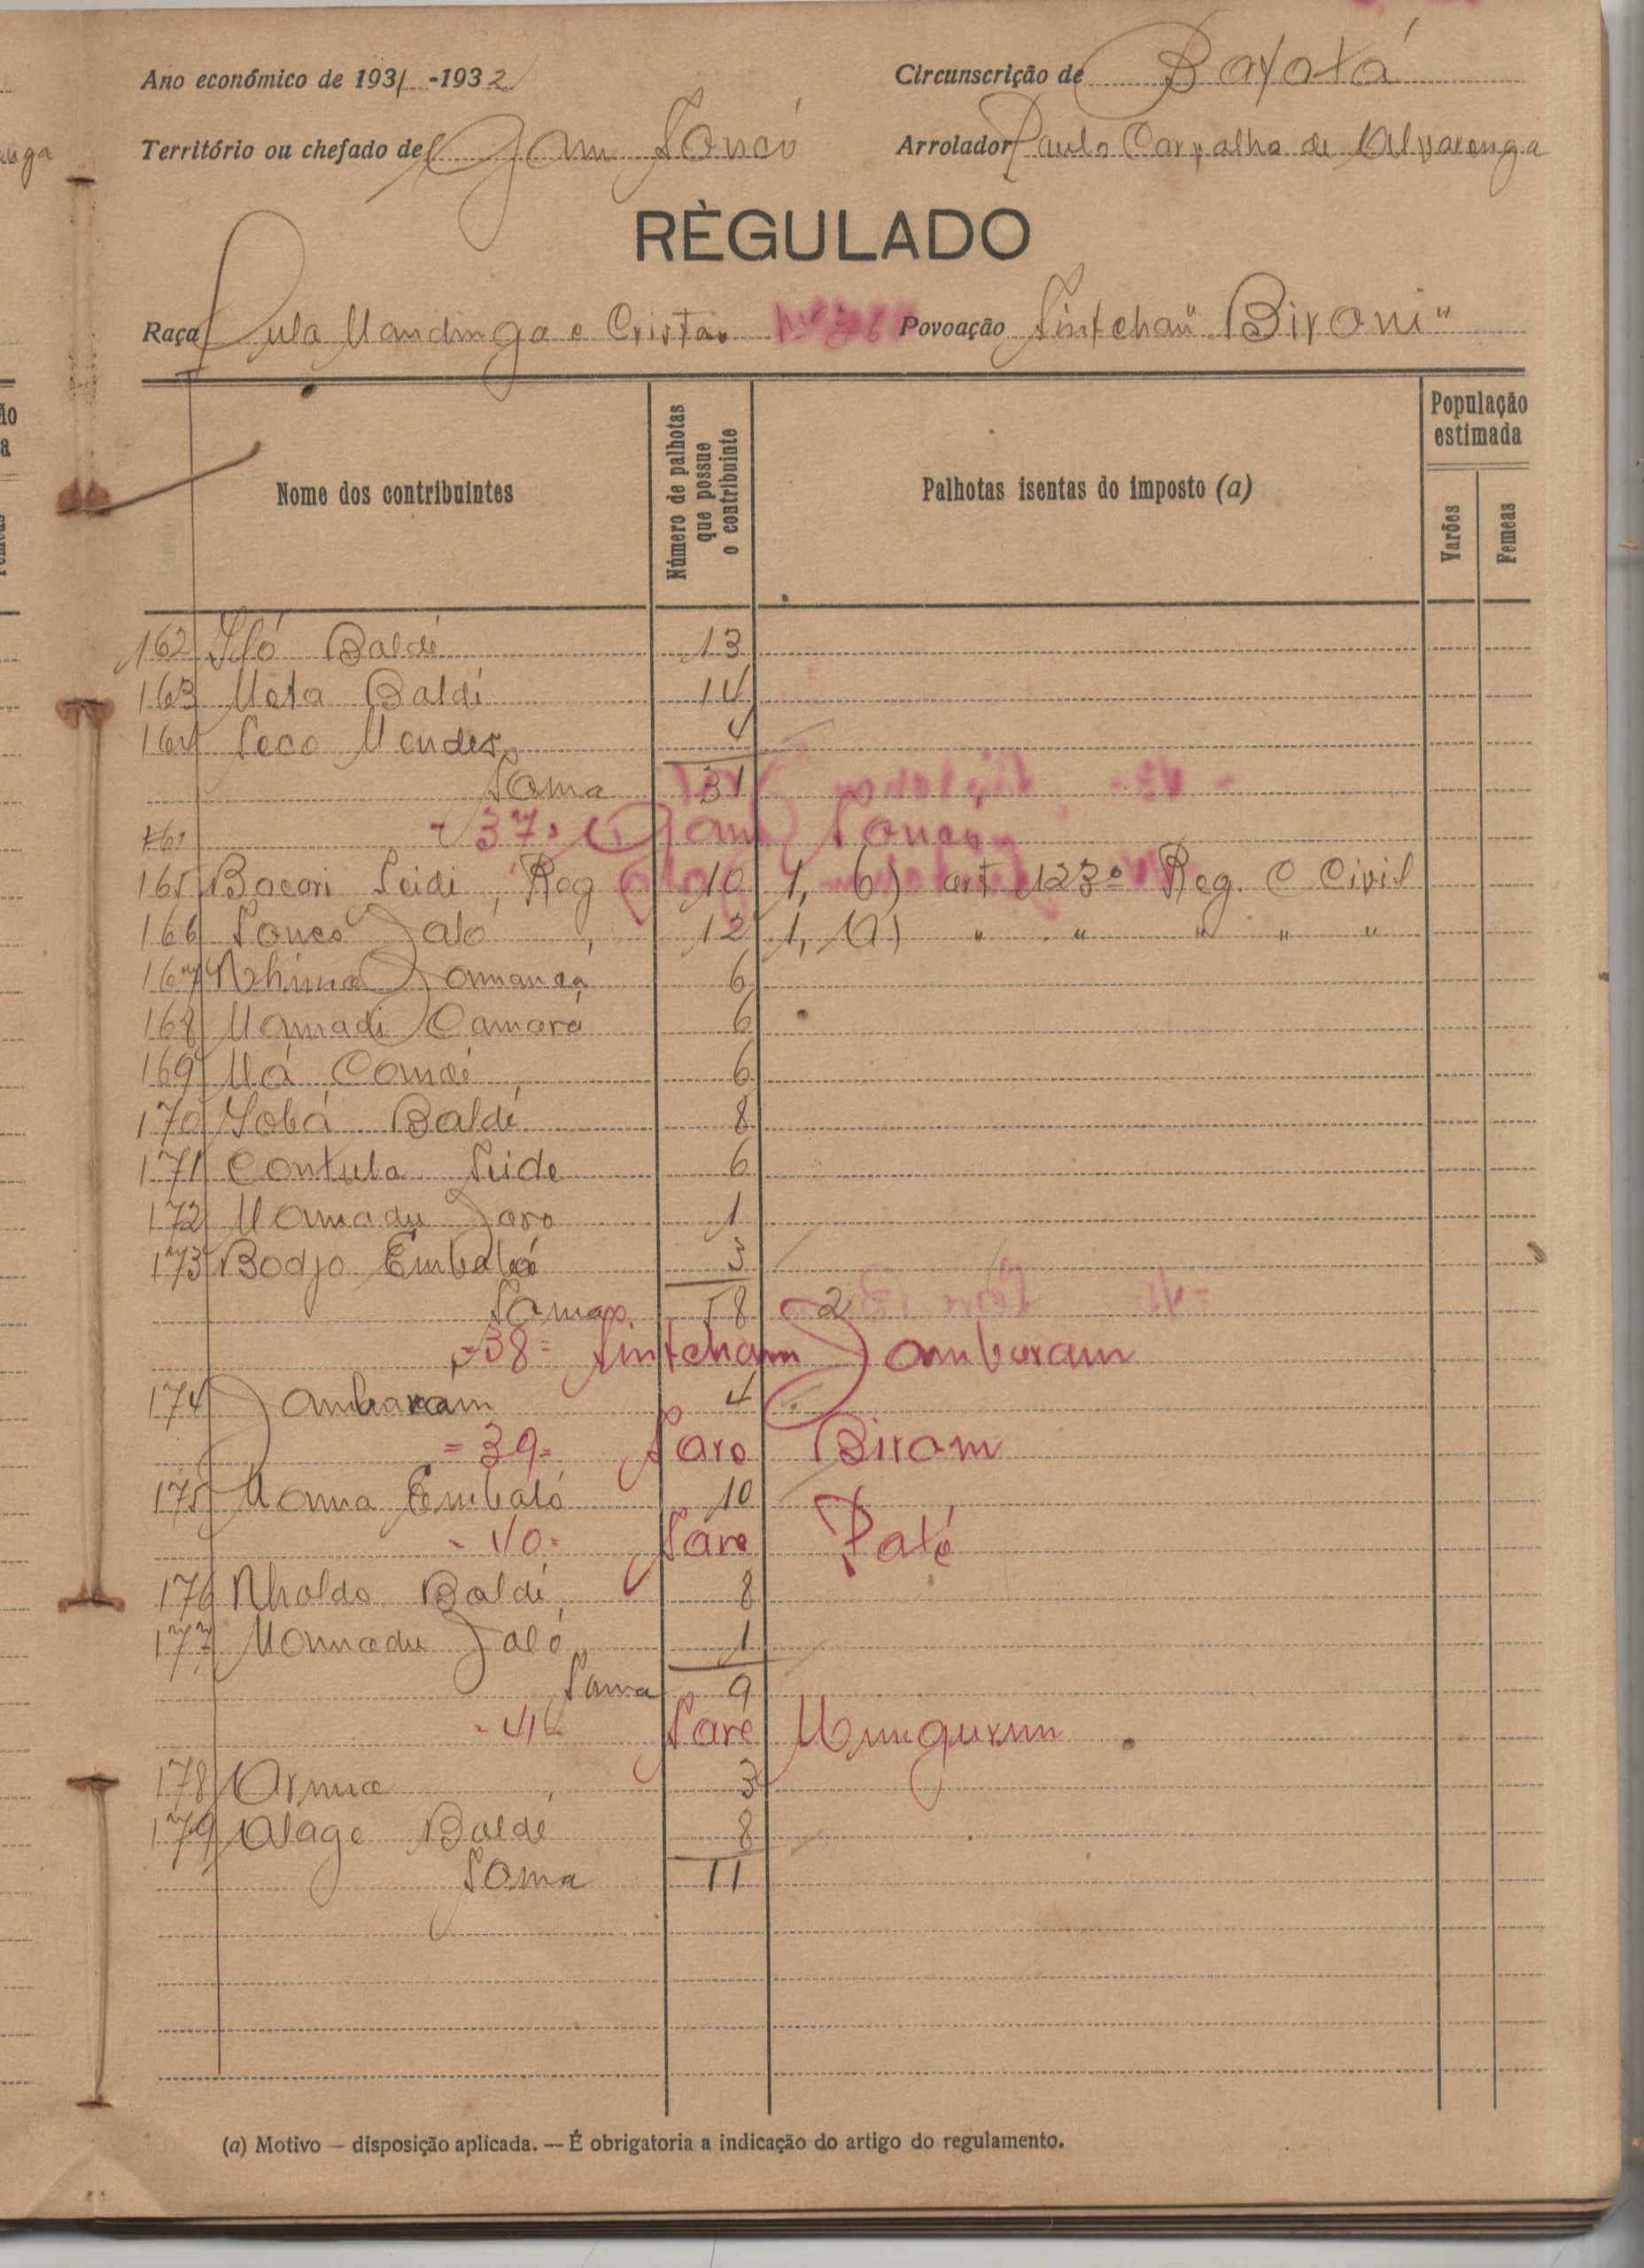 Ano económico de 1931-1932
Circunscrição de Bafatá
Território ou chefado de Gam Sancó
Arrolador Paulo Carvalho de Alvarenga
RÈGULADO
Raça Fula Mandinga e Cristão
Povoação Sintchaü "Birani"
Nome dos contribuintes
Número de palhotas que possue o contribuinte
Palhotas isentas do imposto (a)
População estimada
Varões
Femeas
162 Baldé 13
163 Meta Baldé 14
164 Seco Mendes 4
Soma 31
-37- Gam Sancó
165 Bacari Seidi, Reg 10 1, b) art 123º Reg. C Civil
166 Sanco Jaló 12 1, a) " " " " "
167 6
168 Mamadi Camará 6
169 Má 6
170 Iobá Baldé 8
171 Contula Seide 6
172 Mamadu 1
173 Bodjo Embaló 3
Soma 58 2
-38- Sintcham Jambaram
174 Jambaram 4
=39= Sare Biram
175 Mama Embaló 10
-40- Sare Paté
176 Nhaldo Baldé, 8
177 Mamadu Jaló 1
Soma 9
-41- Saré
178 3
179 Alage Baldé 8
Soma 11
(a) Motivo — disposição aplicada. — É obrigatoria a indicação do artigo do regulamento.